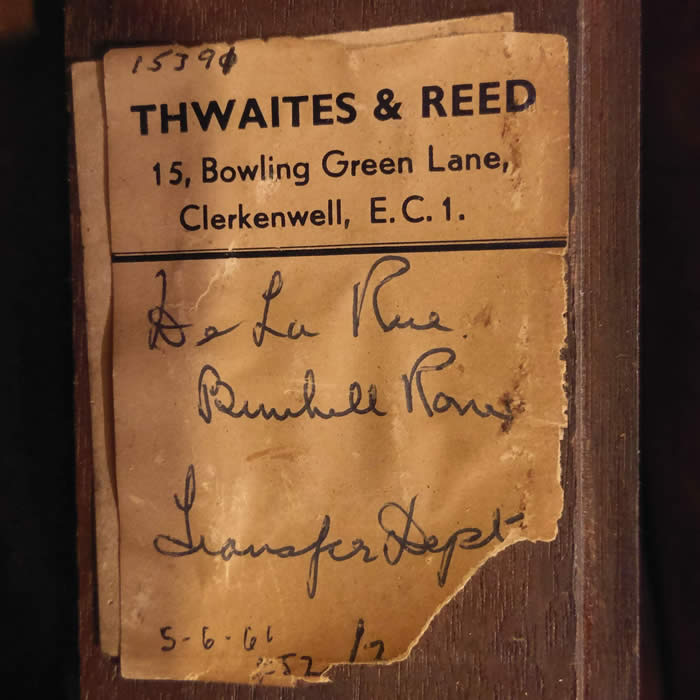 THWAITES & REED
15, Bowling Green Lane,
Clerkenwell, E.C.1.
De La Rue
Bunhill Row
Transfer Dept
5-6-61